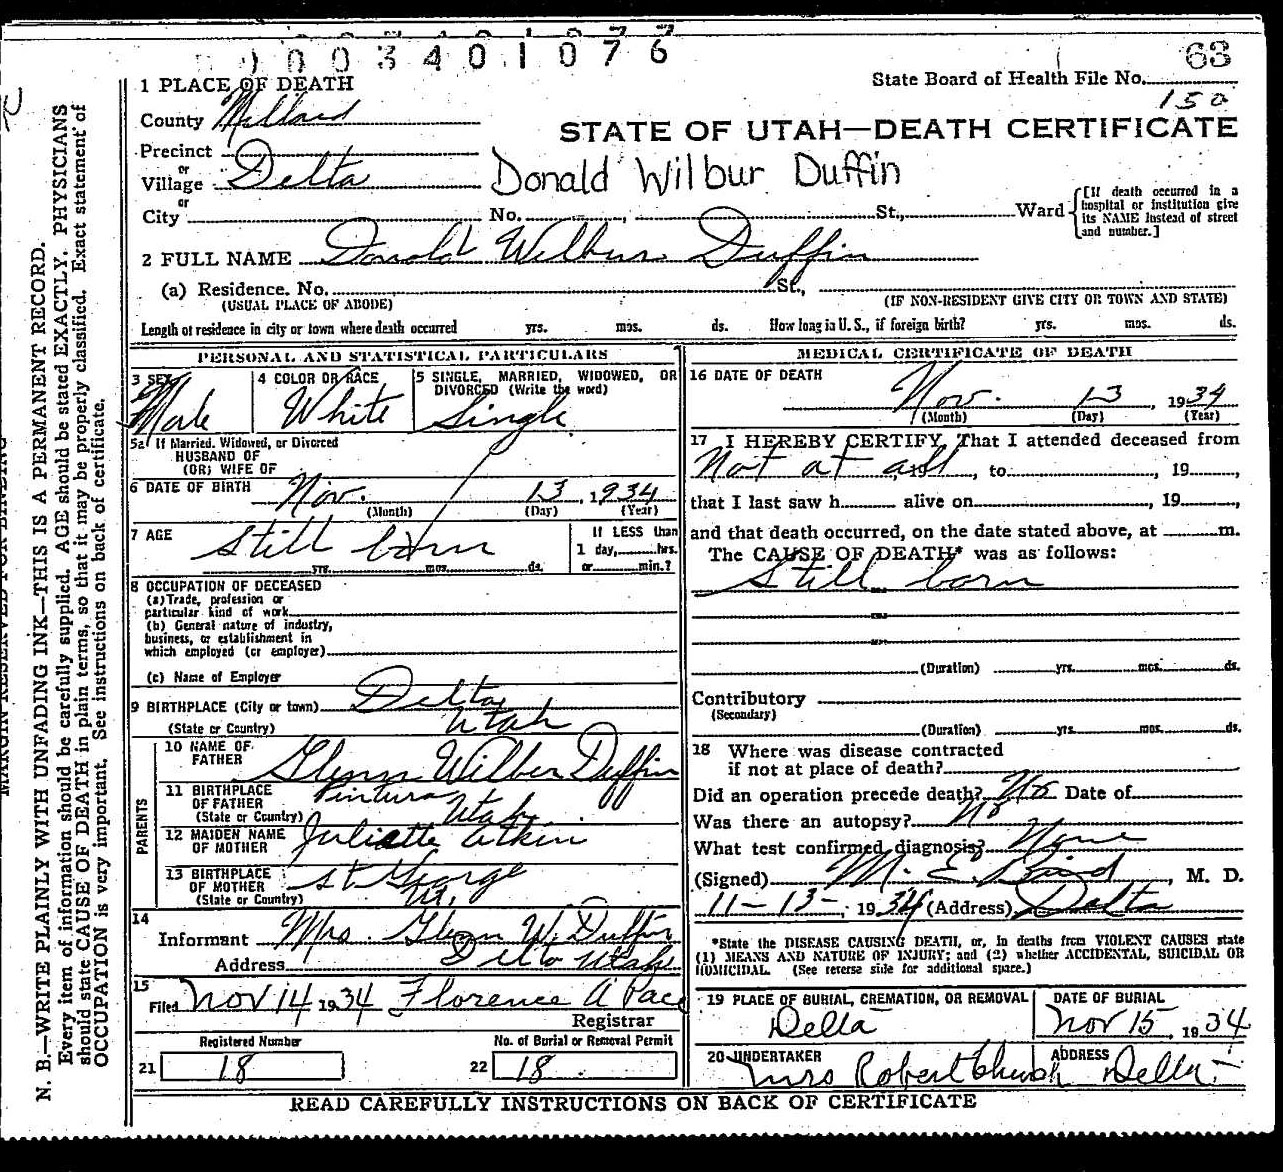 0003401076
63
State Board of Health File No.
150
1 PLACE OF DEATH
County Millard
STATE OF UTAH—DEATH CERTIFICATE
Precinct
or
Village Delta
Donald Wilbur Duffin
or
City No. St., Ward
[If death occurred in a hospital or institution give its NAME instead of street and number.]
2 FULL NAME Donald Wilbur Duffin
(a) Residence. No. St.,
(USUAL PLACE OF ABODE) (IF NON-RESIDENT GIVE CITY OR TOWN AND STATE)
Length of residence in city or town where death occurred yrs. mos. ds. How long in U. S., if foreign birth? yrs. mos. ds.
PERSONAL AND STATISTICAL PARTICULARS
3 SEX Male
4 COLOR OR RACE White
5 SINGLE, MARRIED, WIDOWED, OR DIVORCED (Write the word) Single
5a If Married, Widowed, or Divorced
HUSBAND OF
(OR) WIFE OF
6 DATE OF BIRTH Nov. 13, 1934
(Month) (Day) (Year)
7 AGE Still born
yrs. mos. ds.
If LESS than
1 day, hrs.
or min.?
8 OCCUPATION OF DECEASED
(a) Trade, profession or
particular kind of work
(b) General nature of industry,
business, or establishment in
which employed (or employer)
(c) Name of Employer
9 BIRTHPLACE (City or town) Delta
(State or Country) Utah
PARENTS
10 NAME OF FATHER Glenn Wilber Duffin
11 BIRTHPLACE OF FATHER Pintura
(State or Country) Utah
12 MAIDEN NAME OF MOTHER Juliette Atkin
13 BIRTHPLACE OF MOTHER St. George
(State or Country) Ut.
14
Informant Mrs. Glenn W. Duffin
Address Delta Utah
15
Filed Nov 14 1934 Florence A Pace
Registrar
Registered Number
21 18
No. of Burial or Removal Permit
22 18
MEDICAL CERTIFICATE OF DEATH
16 DATE OF DEATH
Nov. 13, 1934
(Month) (Day) (Year)
17 I HEREBY CERTIFY, That I attended deceased from
Not at all, 19, to, 19,
that I last saw h alive on, 19,
and that death occurred, on the date stated above, at m.
The CAUSE OF DEATH* was as follows:
Still born
(Duration) yrs. mos. ds.
Contributory
(Secondary)
(Duration) yrs. mos. ds.
18 Where was disease contracted
if not at place of death?
Did an operation precede death? No Date of
Was there an autopsy? No
What test confirmed diagnosis? None
(Signed) M. E. Bird, M. D.
11-13-, 1934 (Address) Delta
*State the DISEASE CAUSING DEATH, or, in deaths from VIOLENT CAUSES state
(1) MEANS AND NATURE OF INJURY; and (2) whether ACCIDENTAL, SUICIDAL OR
HOMICIDAL. (See reverse side for additional space.)
19 PLACE OF BURIAL, CREMATION, OR REMOVAL
Delta
DATE OF BURIAL
Nov 15, 1934
20 UNDERTAKER ADDRESS
Mrs Robert Delta
READ CAREFULLY INSTRUCTIONS ON BACK OF CERTIFICATE
MARGIN RESERVED FOR BINDING
N. B.—WRITE PLAINLY WITH UNFADING INK—THIS IS A PERMANENT RECORD.
Every item of information should be carefully supplied. AGE should be stated EXACTLY. PHYSICIANS
should state CAUSE OF DEATH in plain terms, so that it may be properly classified. Exact statement of
OCCUPATION is very important. See instructions on back of certificate.